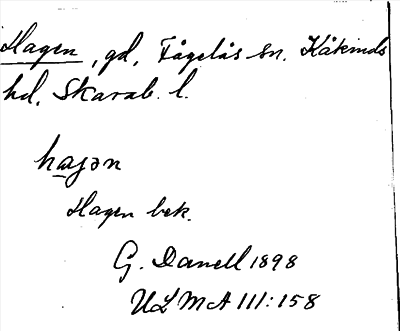 Hagen, gd, Fågelås sn. Kåkinds
hd, Skarab. l.
hagən
Hagen bek.
G. Danell 1898
ULMA 111:158